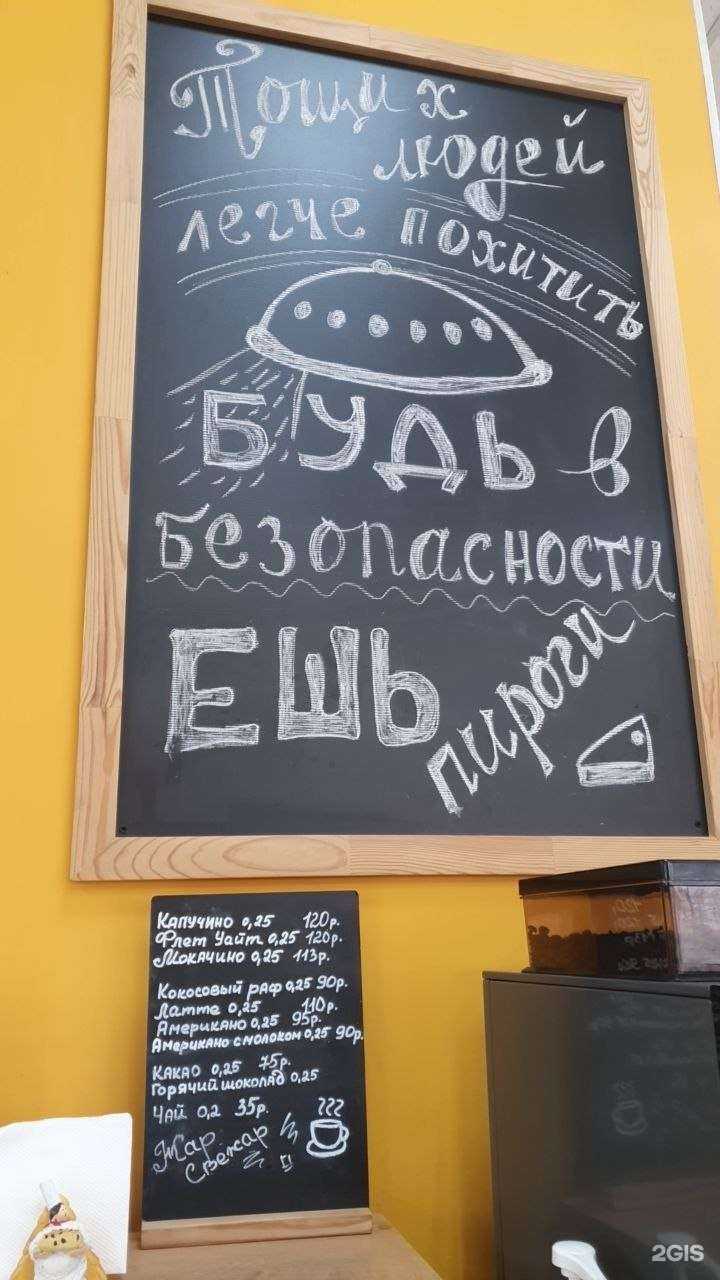 Тощих
людей
легче похитить
БУДЬ в
безопасности
ЕШЬ пироги
Капучино 0,25 120р.
Флет Уайт 0,25 120р.
Мокачино 0,25 113р.
Кокосовый раф 0,25 90р.
Латте 0,25 110р.
Американо 0,25 95р.
Американо с молоком 0,25 90р.
Какао 0,25 75р.
Горячий шоколад 0,25
Чай 0,2 35р.
Жар
Свежар
2GIS